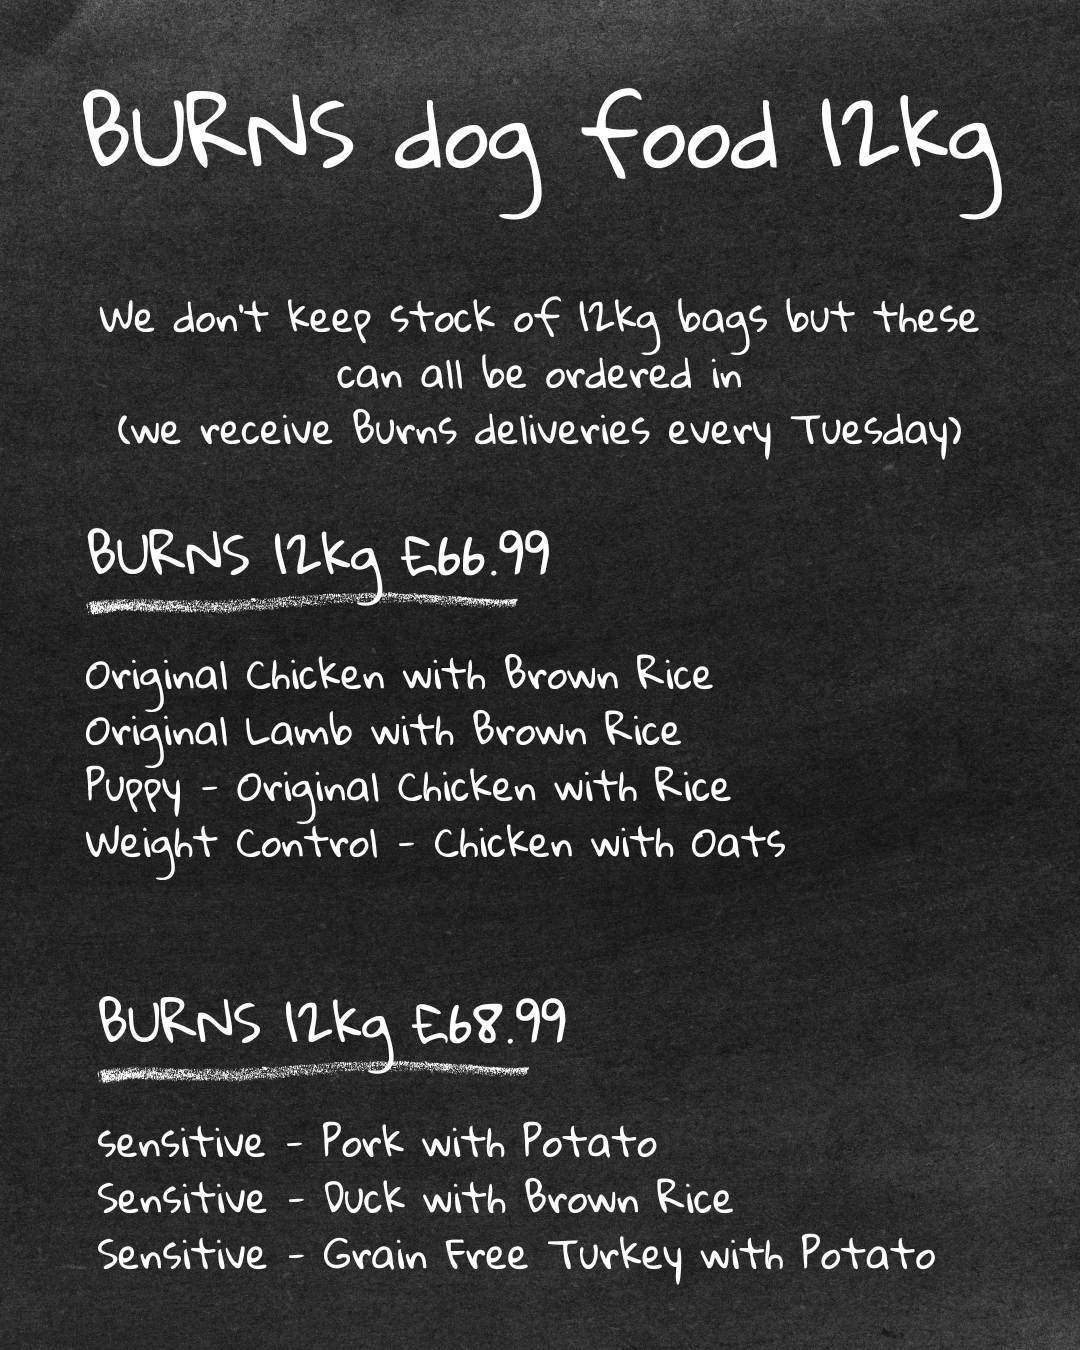 BURNS dog food 12kg
We don't keep stock of 12kg bags but these
can all be ordered in
(we receive Burns deliveries every Tuesday)
BURNS 12kg £66.99
Original Chicken with Brown Rice
Original Lamb with Brown Rice
Puppy - Original Chicken with Rice
Weight Control - Chicken with Oats
BURNS 12kg £68.99
sensitive - Pork with Potato
Sensitive - Duck with Brown Rice
Sensitive - Grain Free Turkey with Potato